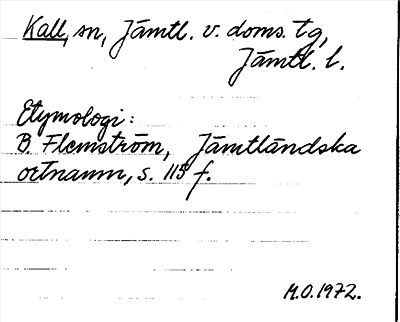 Kall, sn, Jämtl. v. doms. tg,
Jämtl. l.
Etymologi:
B. Flemström, Jämtländska
ortnamn, s. 115 f.
M.O. 1972.